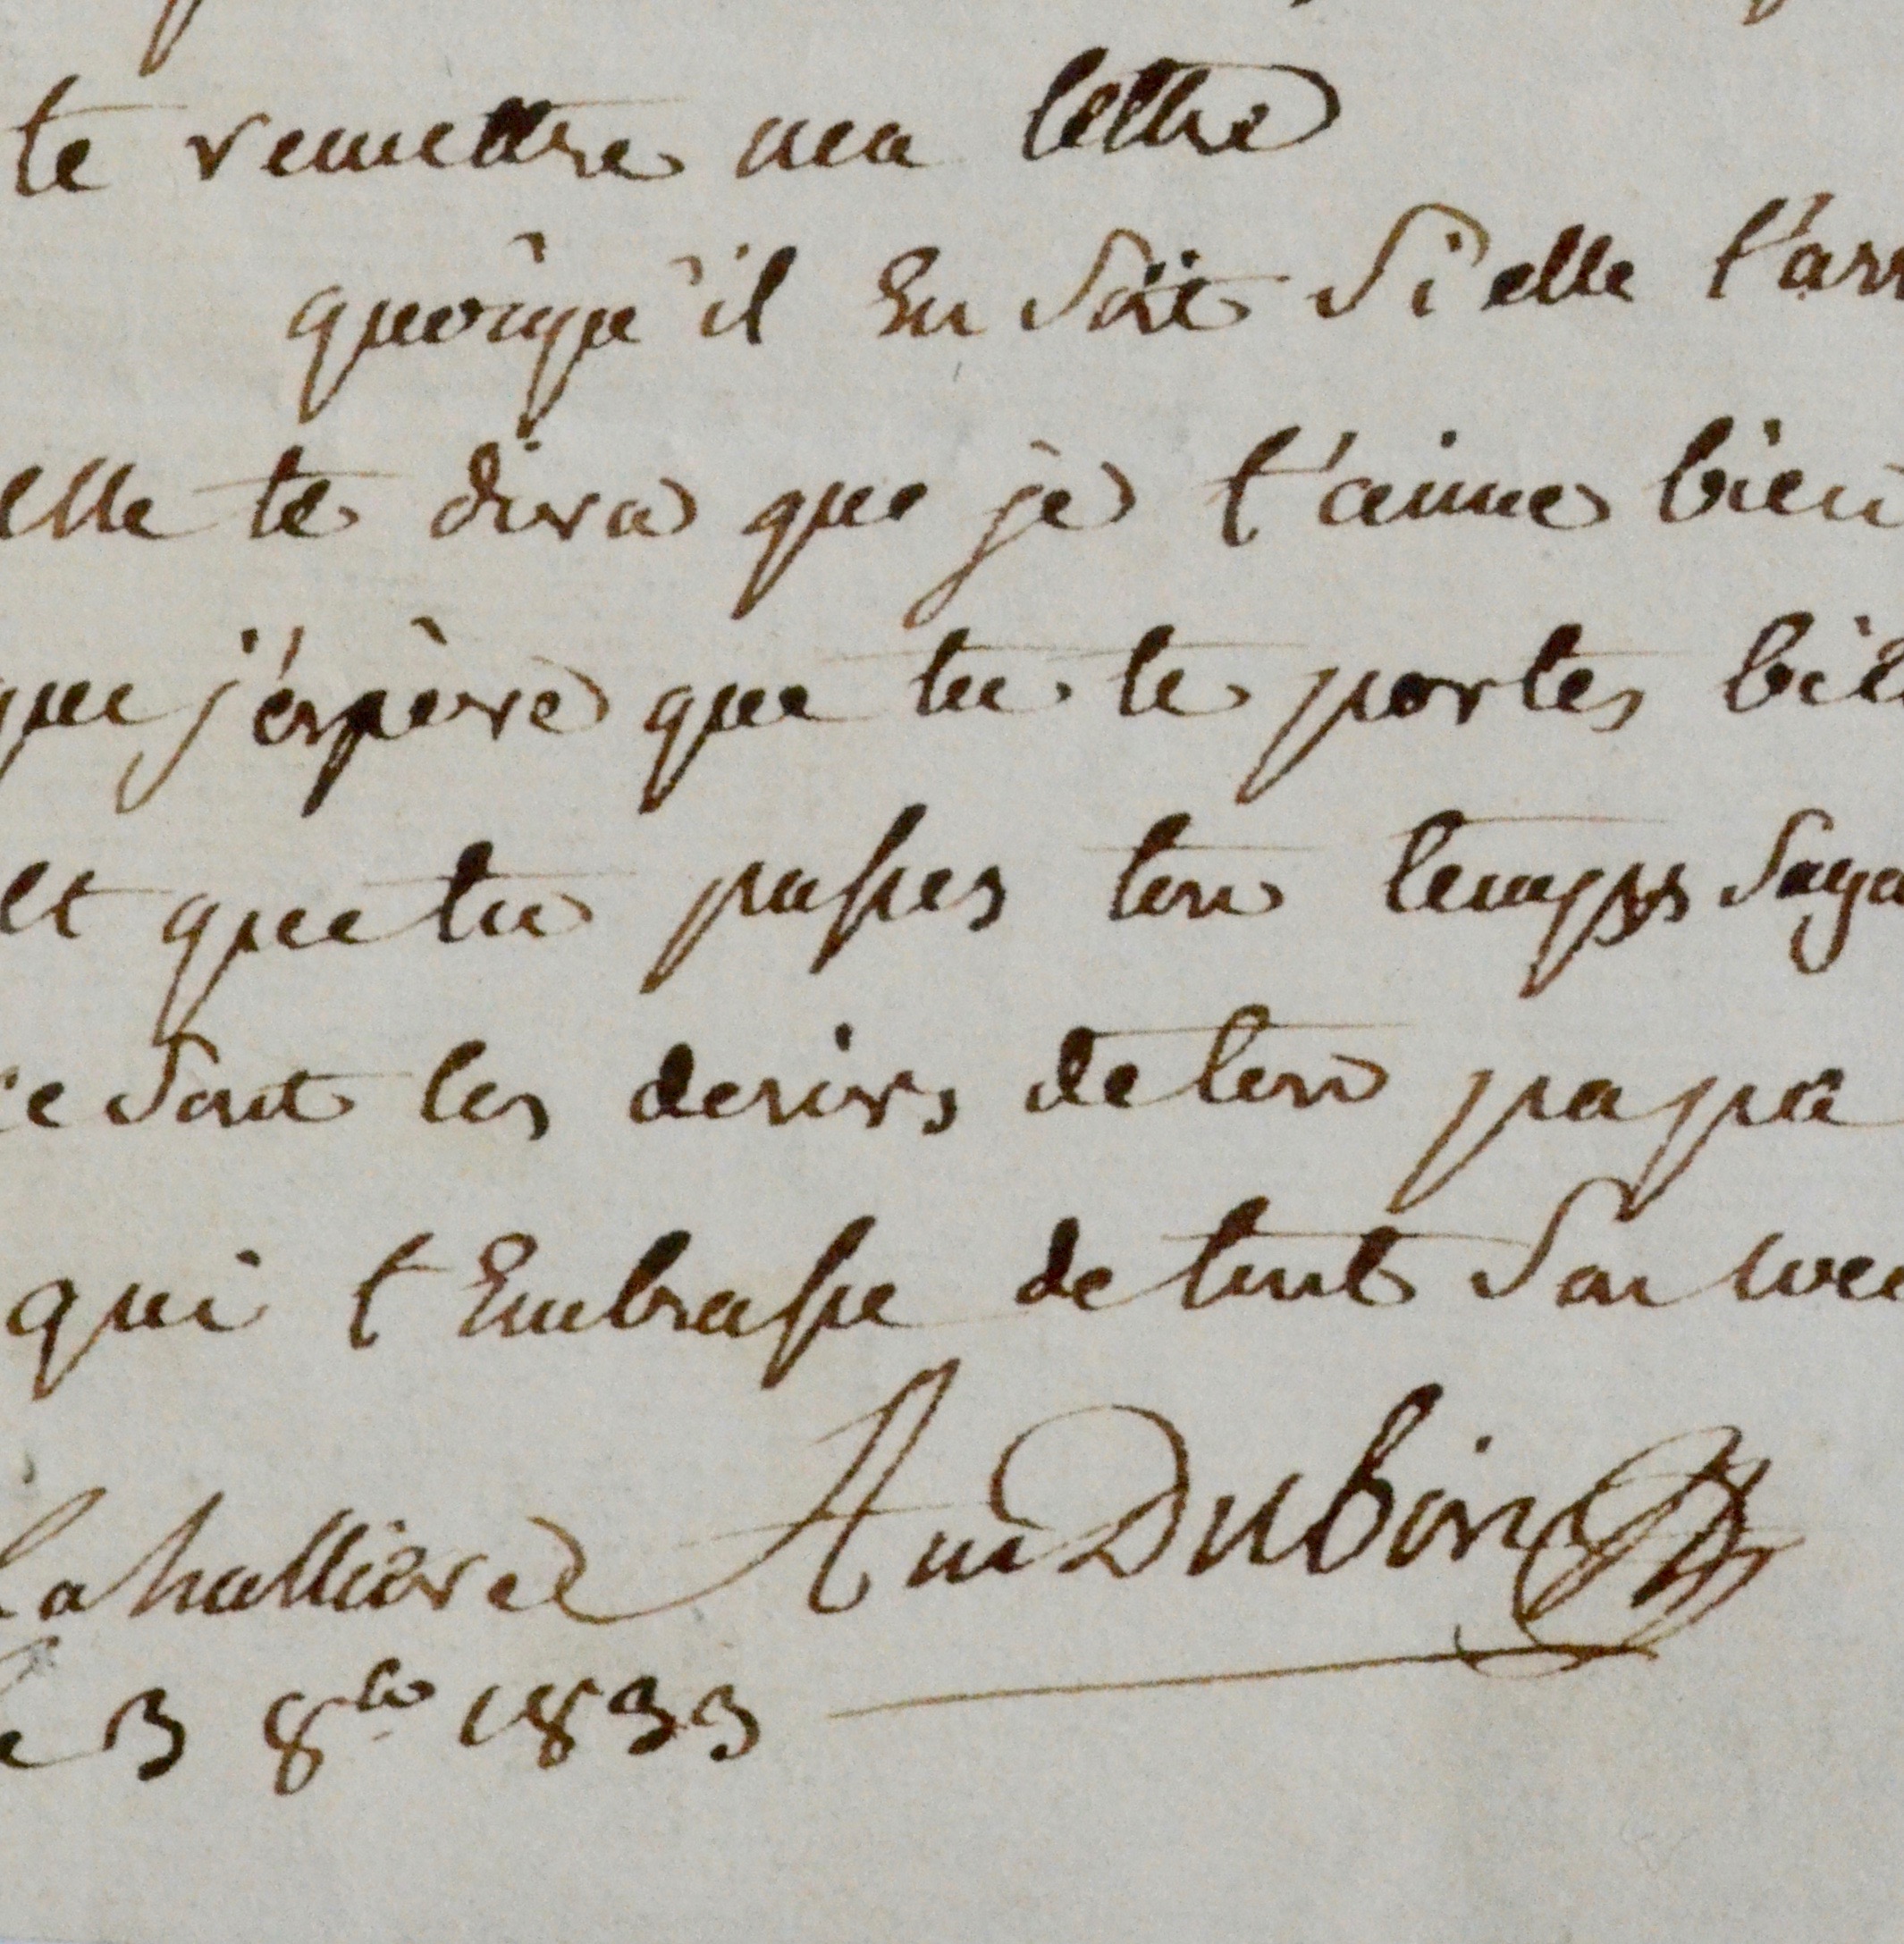 te remettre ma lettre
quoiqu'il En Soit Si elle t'arr
elle te dira que je t'aime bien
que j'éspère que tu te portes bie
et que tu passes ton temps Saga
ce Sont les desirs de ton papa
qui t'Embrasse de tout Son
Lahallière Am Dubin
le 3 8bre 1833